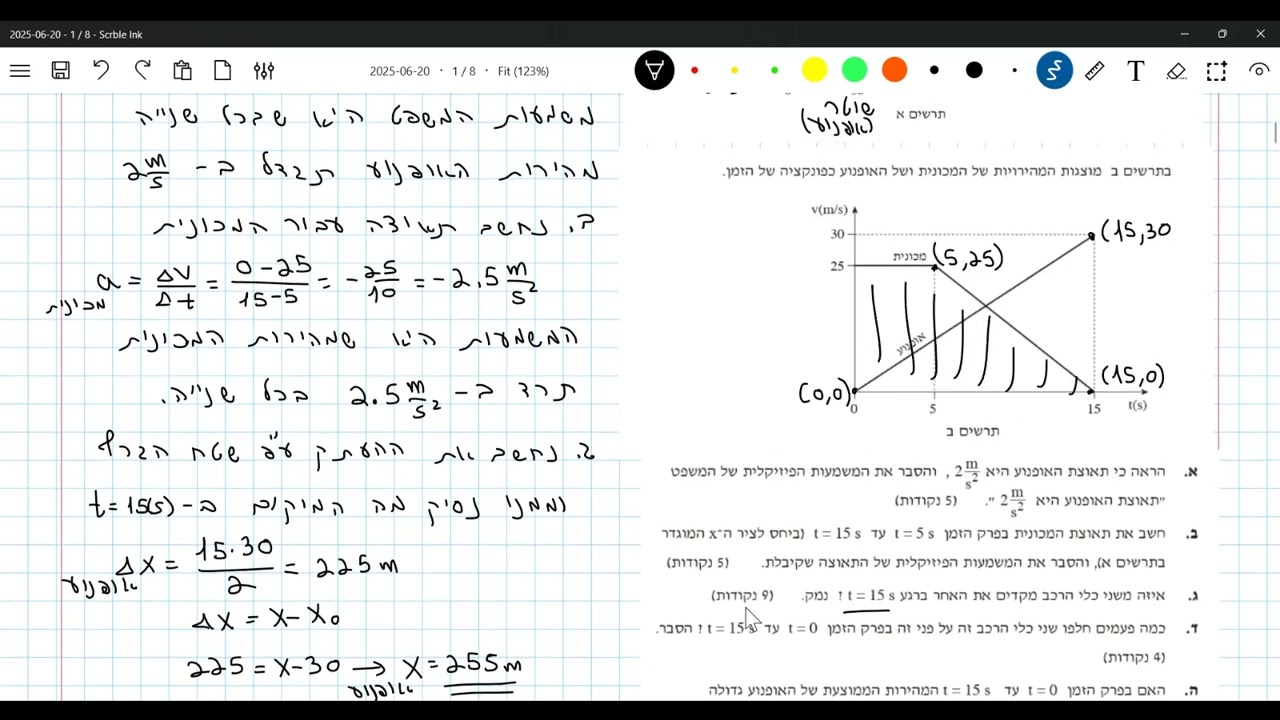 2025-06-20 - 1 / 8 - Scrble Ink
2025-06-20 · 1 / 8 · Fit (123%)
משמעות המשפט היא שבכל שנייה
מהירות האופנוע תגדל ב- 2 m/s
ב. נחשב תאוצה עבור המכונית
a מכונית = ΔV/Δt = (0-25)/(15-5) = -25/10 = -2.5 m/s²
המשמעות היא שמהירות המכונית
תרד ב- 2.5 m/s² בכל שנייה.
ג. נחשב את ההעתק ע"פ שטח הגרף
וממנו נסיק מה המיקום ב- t=15(s)
Δx אופנוע = 15·30/2 = 225m
Δx = x-x₀
225 = x-30 → x אופנוע = 255m
שוטר
(אופנוע)
תרשים א
בתרשים ב מוצגות המהירויות של המכונית ושל האופנוע כפונקציה של הזמן.
v(m/s)
30
(15,30
25
מכונית
(5,25)
אופנוע
(0,0)
(15,0)
0
5
15
t(s)
תרשים ב
א. הראה כי תאוצת האופנוע היא 2 m/s², והסבר את המשמעות הפיזיקלית של המשפט
"תאוצת האופנוע היא 2 m/s²". (5 נקודות)
ב. חשב את תאוצת המכונית בפרק הזמן t = 5 s עד t = 15 s (ביחס לציר ה־x המוגדר
בתרשים א), והסבר את המשמעות הפיזיקלית של התאוצה שקיבלת. (5 נקודות)
ג. איזה משני כלי הרכב מקדים את האחר ברגע t = 15 s ? נמק. (9 נקודות)
ד. כמה פעמים חלפו שני כלי הרכב זה על פני זה בפרק הזמן t = 0 עד t = 15 s ? הסבר.
(4 נקודות)
ה. האם בפרק הזמן t = 0 עד t = 15 s המהירות הממוצעת של האופנוע גדולה